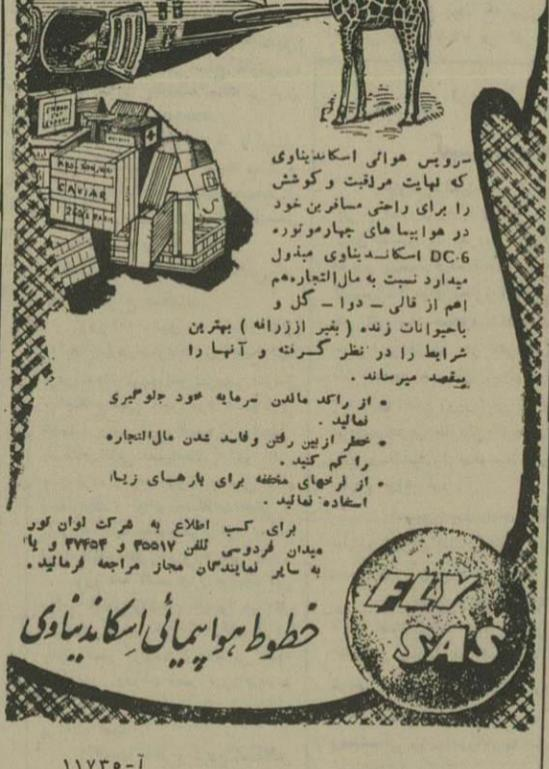 KAPITAN
CAVIAR
سرویس هوائی اسکاندیناوی
که نهایت مراقبت و کوشش
را برای راحتی مسافرین خود
در هواپیما های چهارموتوره
DC-6 اسکاندیناوی مبذول
میدارد نسبت به مال‌التجاره‌هم
اهم از قالی – دوا – گل و
یاحیوانات زنده ( بغیر اززرافه ) بهترین
شرایط را در نظر گرفته و آنها را
بمقصد میرساند .
• از راکد ماندن سرمایه خود جلوگیری
نمائید .
• خطر ازبین رفتن وفاسد شدن مال‌التجاره
را کم کنید .
• از نرخهای مخففه برای بارهای زیاد
استفاده نمائید .
برای کسب اطلاع به شرکت لوان تور
میدان فردوسی تلفن ۳۵۵۱۷ و ۳۷۴۵۴ و یا
به سایر نمایندگان مجاز مراجعه فرمائید .
خطوط هواپیمائی اسکاندیناوی
FLY
SAS
آ-۱۱۷۳۵